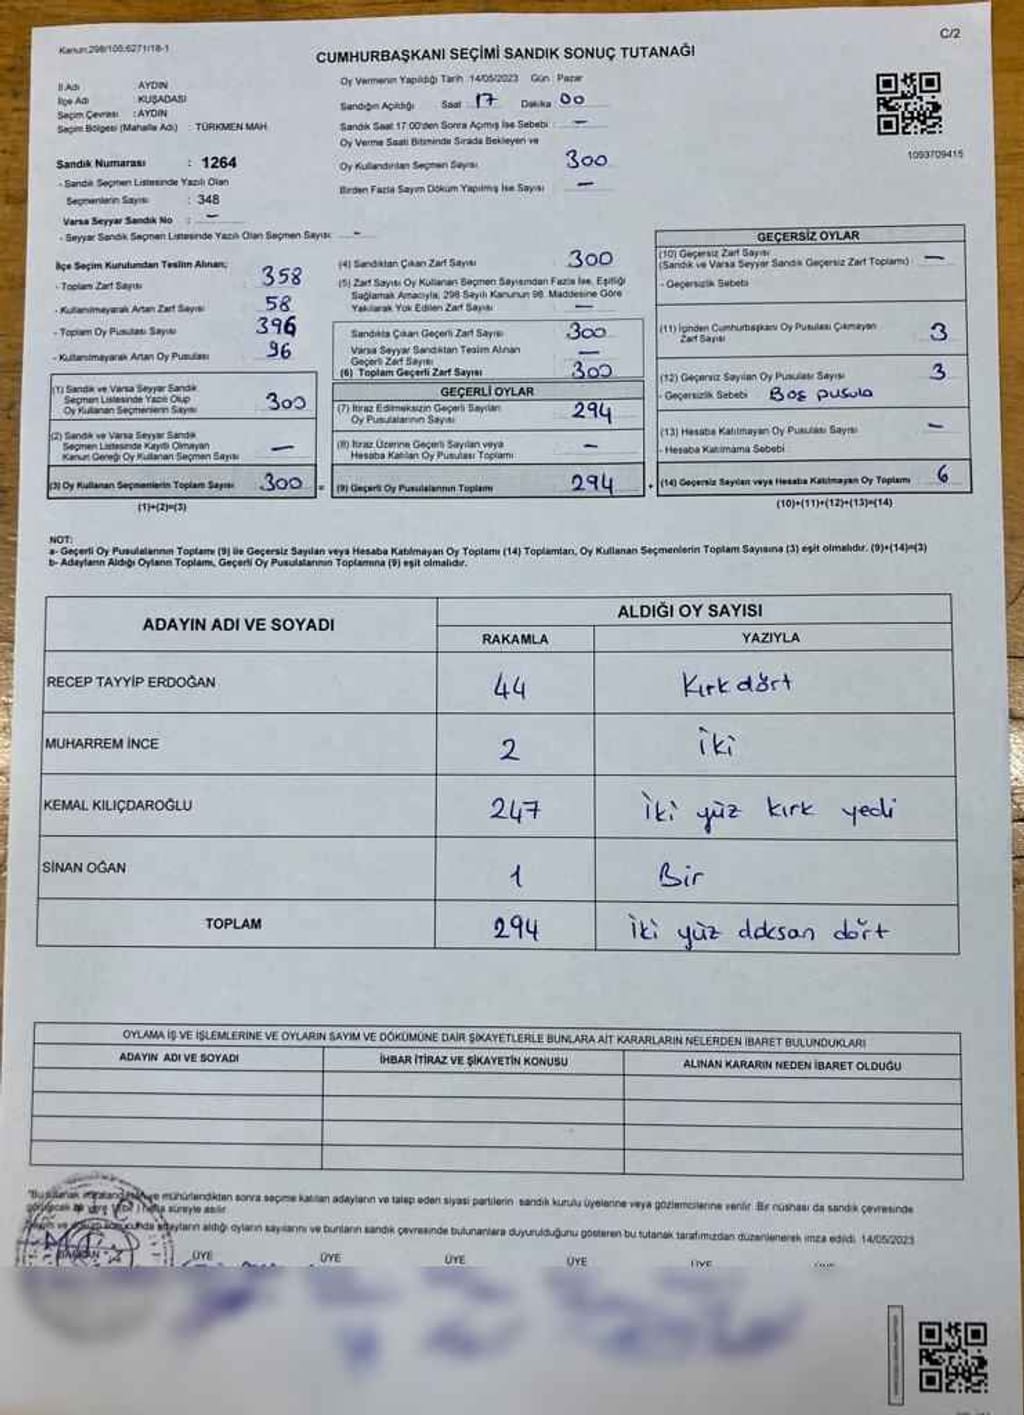 Kanun:298/105;6271/18-1
C/2
CUMHURBAŞKANI SEÇİMİ SANDIK SONUÇ TUTANAĞI
İl Adı : AYDIN
İlçe Adı : KUŞADASI
Seçim Çevresi : AYDIN
Seçim Bölgesi (Mahalle Adı) : TÜRKMEN MAH.
Sandık Numarası : 1264
- Sandık Seçmen Listesinde Yazılı Olan
Seçmenlerin Sayısı : 348
Varsa Seyyar Sandık No : -
- Seyyar Sandık Seçmen Listesinde Yazılı Olan Seçmen Sayısı: -
Oy Vermenin Yapıldığı Tarih :14/05/2023 Gün : Pazar
Sandığın Açıldığı Saat : 17 Dakika 00
Sandık Saat 17:00'den Sonra Açılmış İse Sebebi : -
Oy Verme Saati Bitiminde Sırada Bekleyen ve
Oy Kullandırılan Seçmen Sayısı 300
Birden Fazla Sayım Döküm Yapılmış İse Sayısı -
1093709415
İlçe Seçim Kurulundan Teslim Alınan;
- Toplam Zarf Sayısı 358
- Kullanılmayarak Artan Zarf Sayısı 58
- Toplam Oy Pusulası Sayısı 396
- Kullanılmayarak Artan Oy Pusulası 96
(1) Sandık ve Varsa Seyyar Sandık
Seçmen Listesinde Yazılı Olup
Oy Kullanan Seçmenlerin Sayısı 300
(2) Sandık ve Varsa Seyyar Sandık
Seçmen Listesinde Kayıtlı Olmayan
Kanun Gereği Oy Kullanan Seçmen Sayısı -
(3) Oy Kullanan Seçmenlerin Toplam Sayısı 300 =
(1)+(2)=(3)
(4) Sandıktan Çıkan Zarf Sayısı 300
(5) Zarf Sayısı Oy Kullanan Seçmen Sayısından Fazla İse, Eşitliği
Sağlamak Amacıyla, 298 Sayılı Kanunun 98. Maddesine Göre
Yakılarak Yok Edilen Zarf Sayısı -
Sandıkta Çıkan Geçerli Zarf Sayısı 300
Varsa Seyyar Sandıktan Teslim Alınan
Geçerli Zarf Sayısı -
(6) Toplam Geçerli Zarf Sayısı 300
GEÇERLİ OYLAR
(7) İtiraz Edilmeksizin Geçerli Sayılan
Oy Pusulalarının Sayısı 294
(8) İtiraz Üzerine Geçerli Sayılan veya
Hesaba Katılan Oy Pusulası Toplamı -
(9) Geçerli Oy Pusulalarının Toplamı 294 +
GEÇERSİZ OYLAR
(10) Geçersiz Zarf Sayısı
(Sandık ve Varsa Seyyar Sandık Geçersiz Zarf Toplamı) : -
- Geçersizlik Sebebi
(11) İçinden Cumhurbaşkanı Oy Pusulası Çıkmayan
Zarf Sayısı 3
(12) Geçersiz Sayılan Oy Pusulası Sayısı 3
- Geçersizlik Sebebi Boş pusula
(13) Hesaba Katılmayan Oy Pusulası Sayısı -
- Hesaba Katılmama Sebebi
(14) Geçersiz Sayılan veya Hesaba Katılmayan Oy Toplamı 6
(10)+(11)+(12)+(13)=(14)
NOT:
a- Geçerli Oy Pusulalarının Toplamı (9) ile Geçersiz Sayılan veya Hesaba Katılmayan Oy Toplamı (14) Toplamları, Oy Kullanan Seçmenlerin Toplam Sayısına (3) eşit olmalıdır. (9)+(14)=(3)
b- Adayların Aldığı Oyların Toplamı, Geçerli Oy Pusulalarının Toplamına (9) eşit olmalıdır.
ADAYIN ADI VE SOYADI ALDIĞI OY SAYISI
RAKAMLA YAZIYLA
RECEP TAYYİP ERDOĞAN 44 Kırk dört
MUHARREM İNCE 2 İki
KEMAL KILIÇDAROĞLU 247 İki yüz kırk yedi
SİNAN OĞAN 1 Bir
TOPLAM 294 İki yüz doksan dört
OYLAMA İŞ VE İŞLEMLERİNE VE OYLARIN SAYIM VE DÖKÜMÜNE DAİR ŞİKAYETLERLE BUNLARA AİT KARARLARIN NELERDEN İBARET BULUNDUKLARI
ADAYIN ADI VE SOYADI İHBAR İTİRAZ VE ŞİKAYETİN KONUSU ALINAN KARARIN NEDEN İBARET OLDUĞU
mühürlendikten sonra seçime katılan adayların ve talep eden siyasi partilerin sandık kurulu üyelerine veya gözlemcilerine verilir. Bir nüshası da sandık çevresinde
süreyle asılır.
adayların aldığı oyların sayılarını ve bunların sandık çevresinde bulunanlara duyurulduğunu gösteren bu tutanak tarafımızdan düzenlenerek imza edildi. 14/05/2023
BAŞKAN ÜYE ÜYE ÜYE ÜYE ÜYE